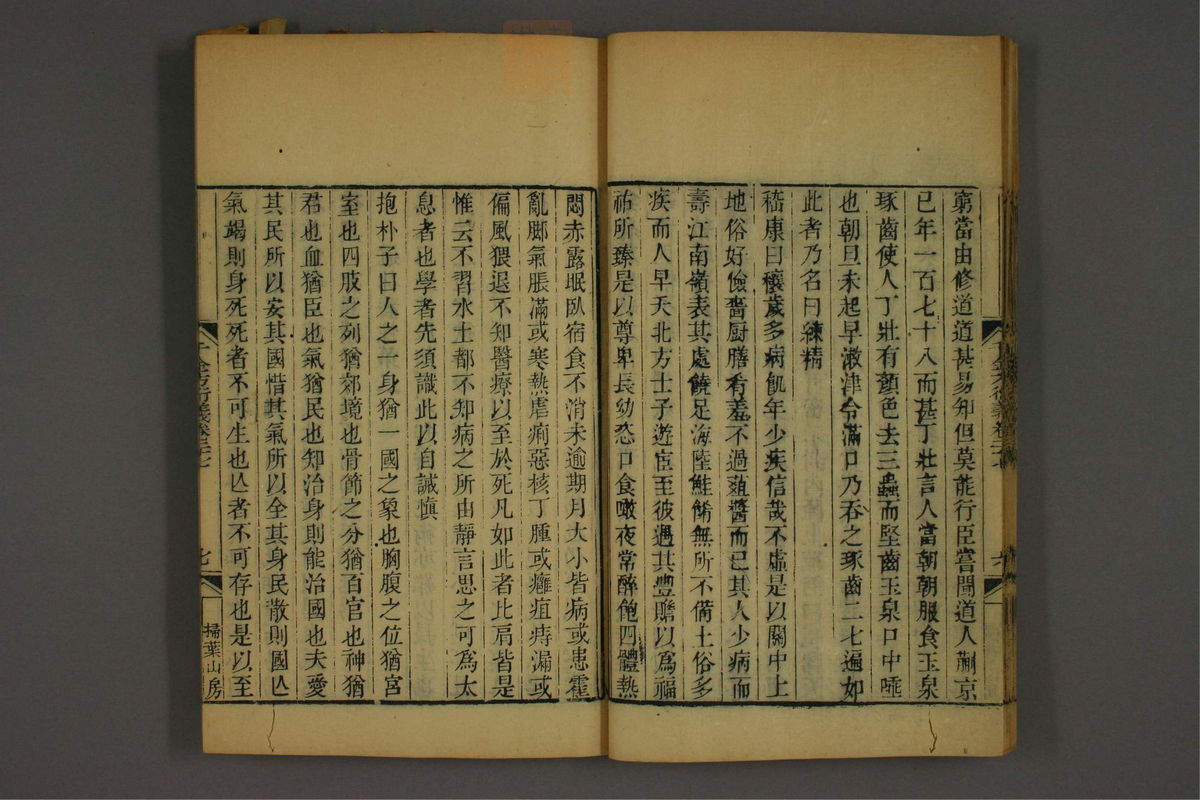 窮當由修道道甚易知但莫能行臣嘗聞道人蒯京
已年一百七十八而甚丁壯言人當朝朝服食玉泉
琢齒使人丁壯有顏色去三蟲而堅齒玉泉口中唾
也朝旦未起早漱津令滿口乃吞之琢齒二七遍如
此者乃名曰練精
嵇康曰穰歲多病飢年少疾信哉不虛是以關中土
地俗好儉嗇厨膳肴羞不過葅醬而已其人少病而
壽江南嶺表其處饒足海陸鮭餚無所不備土俗多
疾而人早夭北方士子遊宦至彼遇其豐贍以爲福
祐所臻是以尊卑長幼恣口食噉夜常醉飽四體熱
千金方衍義卷二十七
六
悶赤露眠臥宿食不消未逾期月大小皆病或患霍
亂脚氣脹滿或寒熱瘧痢惡核丁腫或癰疽痔漏或
偏風猥退不知醫療以至於死凡如此者比肩皆是
惟云不習水土都不知病之所由靜言思之可爲太
息者也學者先須識此以自誡慎
抱朴子曰人之一身猶一國之象也胸腹之位猶宮
室也四肢之列猶郊境也骨節之分猶百官也神猶
君也血猶臣也氣猶民也知治身則能治國也夫愛
其民所以安其國惜其氣所以全其身民散則國亾
氣竭則身死死者不可生也亾者不可存也是以至
千金方衍義卷二十七
七
掃葉山房